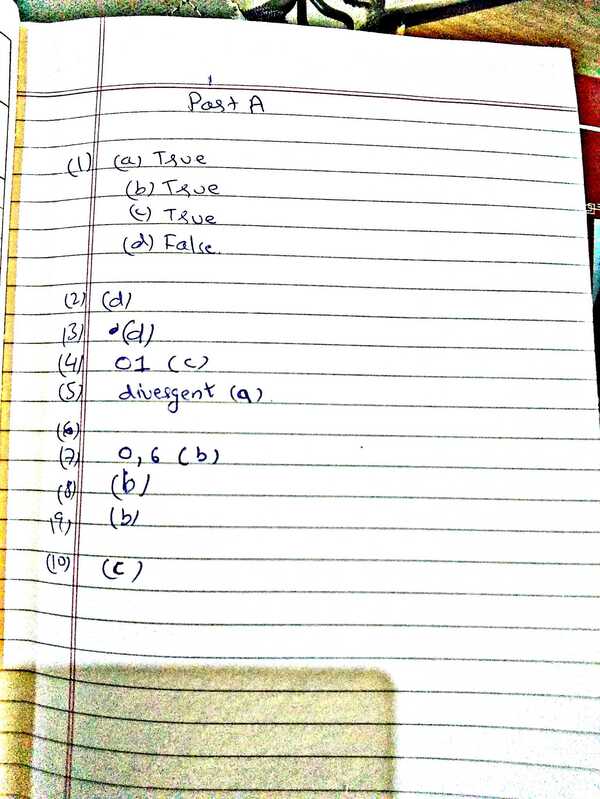 Part A
(1) (a) True
(b) True
(c) True
(d) False.
(2) (d)
(3) (d)
(4) 01 (c)
(5) divergent (a)
(6)
(7) 0, 6 (b)
(8) (b)
(9) (b)
(10) (c)